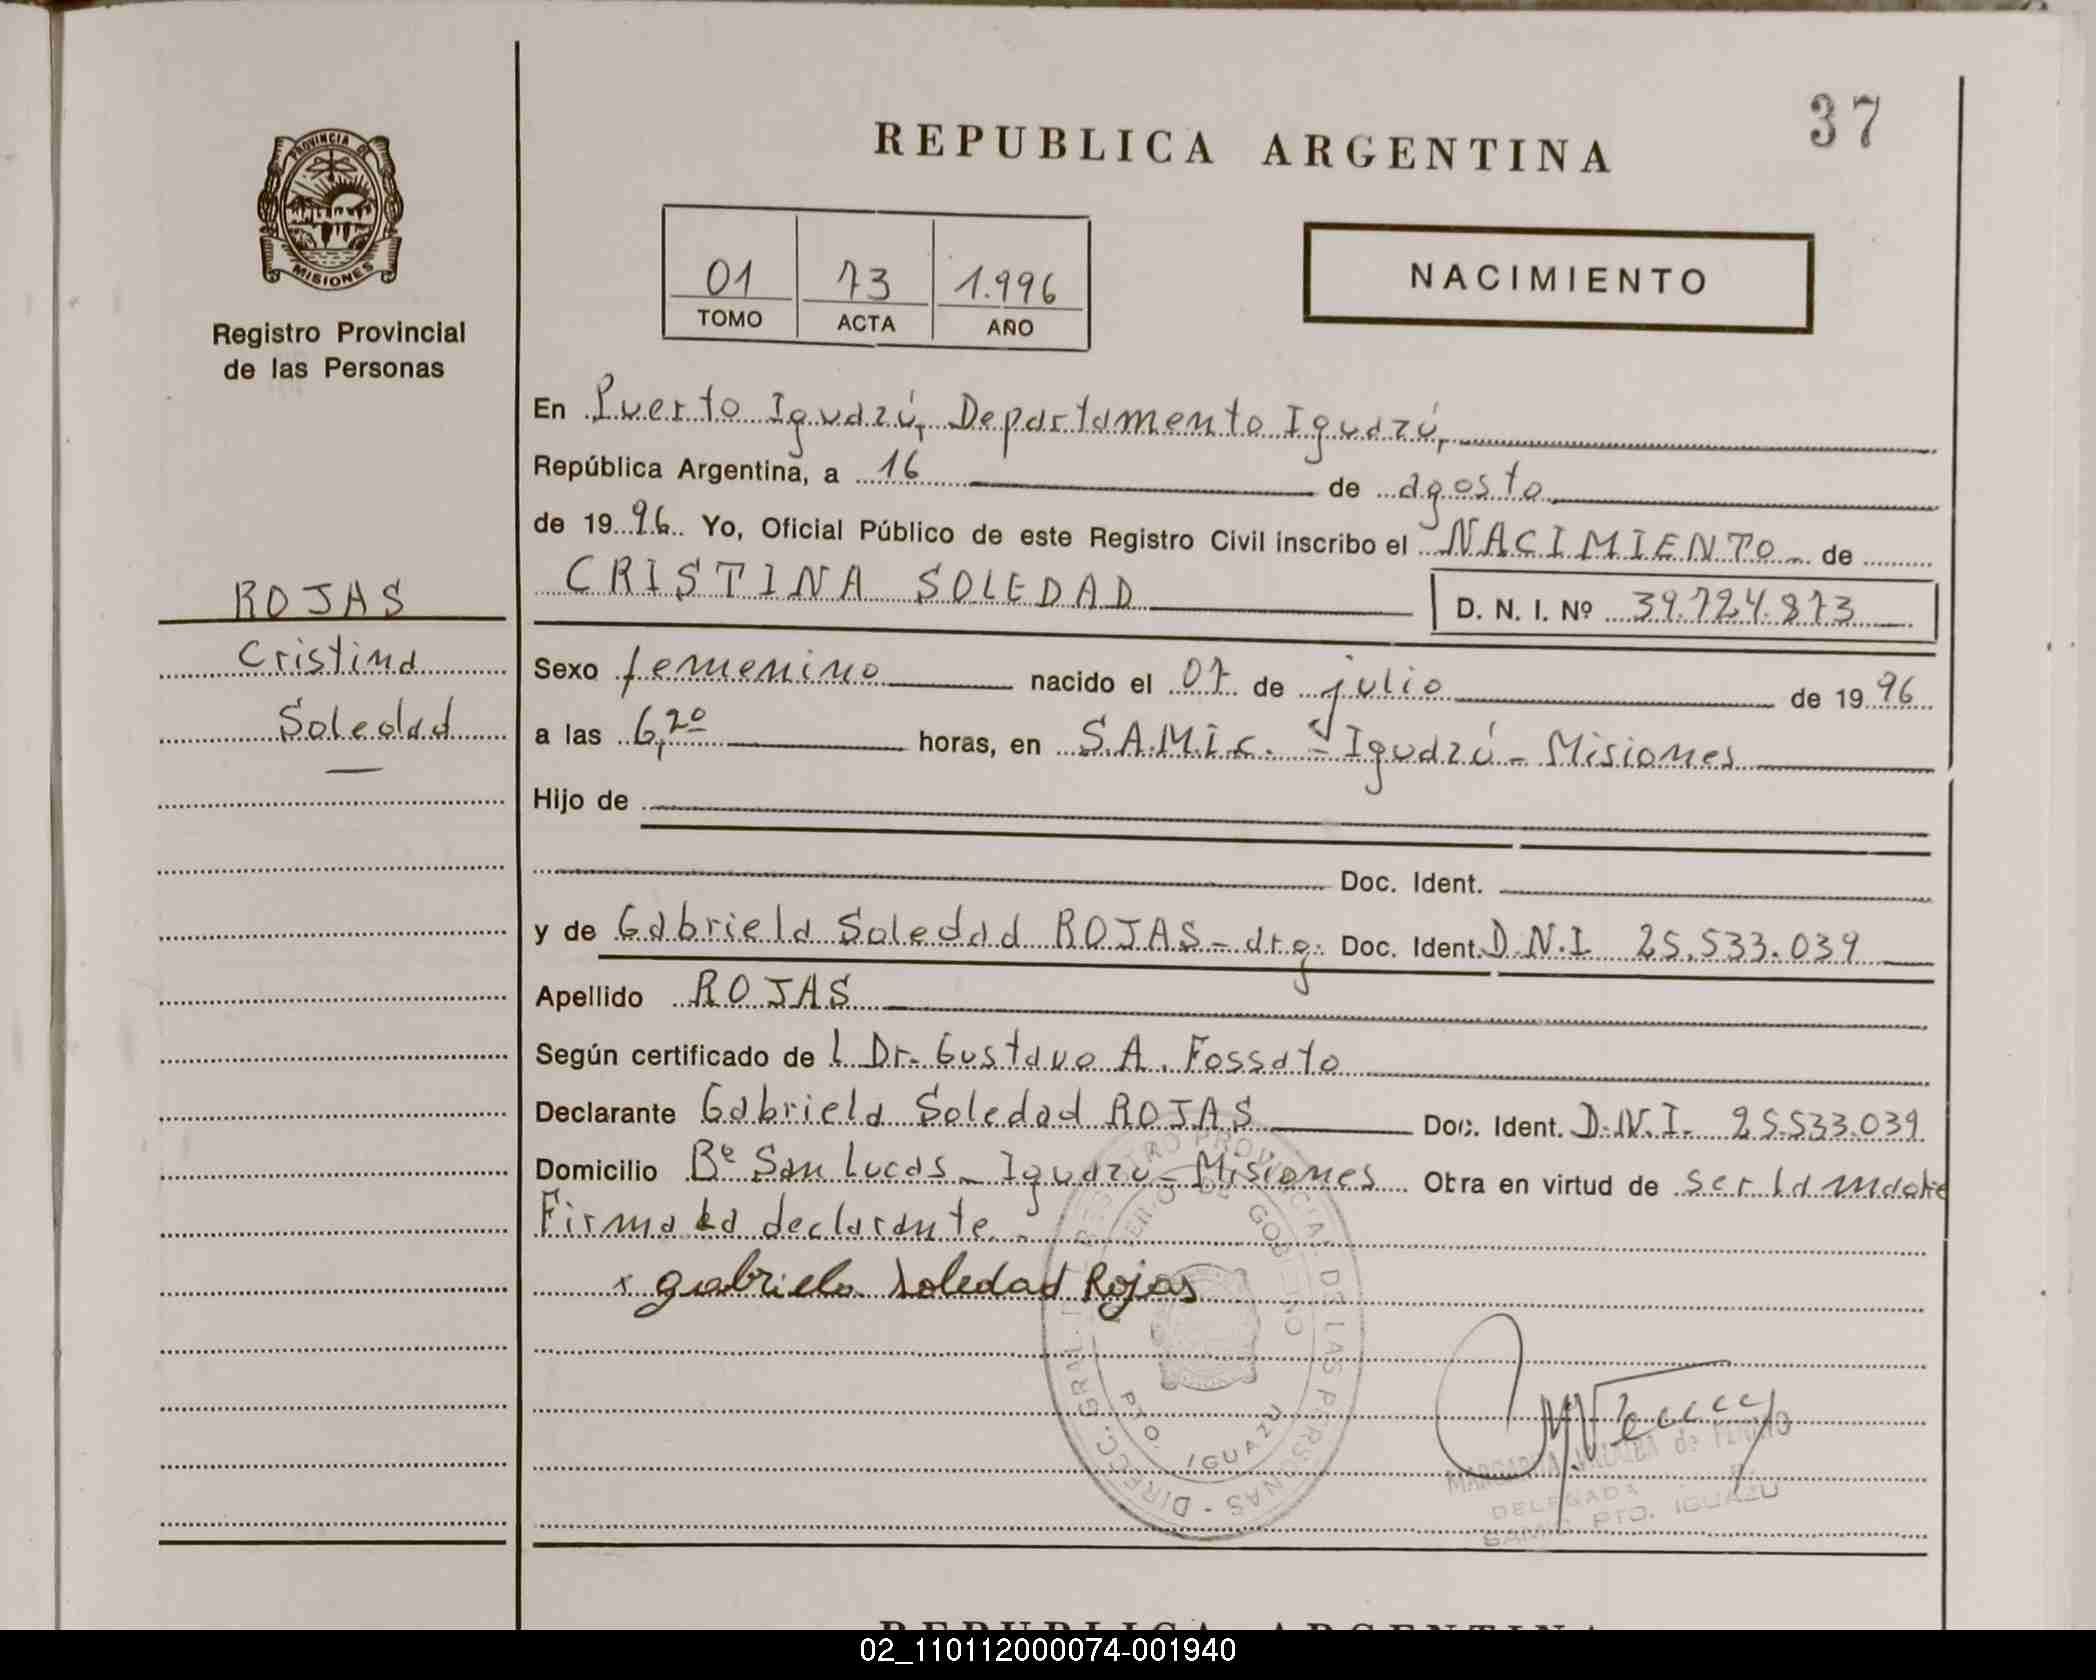 37
REPUBLICA ARGENTINA
PROVINCIA DE
MISIONES
Registro Provincial
de las Personas
01 73 1.996
TOMO ACTA AÑO
NACIMIENTO
En Puerto Iguazú, Departamento Iguazú,
República Argentina, a 16 de agosto
de 1996 Yo, Oficial Público de este Registro Civil inscribo el NACIMIENTO de
CRISTINA SOLEDAD D. N. I. Nº 39.724.873
ROJAS
Cristina
Soledad
Sexo femenino nacido el 07 de julio de 1996
a las 6,20 horas, en S.A.M.i.c. - Iguazú - Misiones
Hijo de
Doc. Ident.
y de Gabriela Soledad ROJAS - arg. Doc. Ident. D.N.I 25.533.039
Apellido ROJAS
Según certificado de l Dr. Gustavo A. Fossato
Declarante Gabriela Soledad ROJAS Doc. Ident. D.N.I. 25.533.039
Domicilio Bº San Lucas - Iguazú - Misiones Obra en virtud de ser la madre
Firma la declarante.-
x Gabriela Soledad Rojas
DIRECC. GRAL. REGISTRO PROVINCIAL DE LAS PERSONAS
DE GOBIERNO
PTO. IGUAZU
MARGARITA de
DELEGADA
SAMIC PTO. IGUAZU
REPUBLICA ARGENTINA
02_110112000074-001940